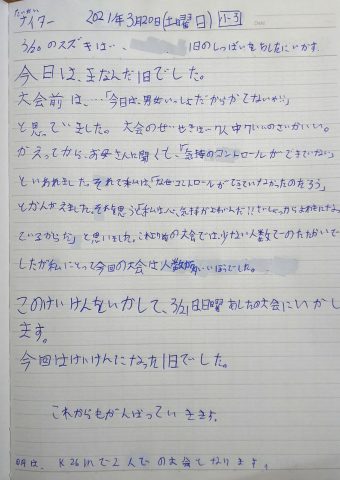 たいかい
ナイター 2021年3月20日(土曜日) 11-3
3/20のスズキは、 1日のしっぱいをあしたにいかす。
今日は、まなんだ1日でした。
大会前は、…「今日は、男女いっしょだからかてないか!!」
と思っていました。大会のせいせきは7人中7いのさいかい。
かえってから、お母さんに聞くて、「気持のコントロールができていない」
といわれました。それで私は、「なぜコントロールができていなかったのだろう」
とかんがえました。それを思うと「私は心、気持がよわいんだ!!さいしょっからよわきになっ
ているからだ」と思いました。これより前の大会では、少ない人数でのたたかいで
したが私にとって今回の大会は人数が いほうでした。
このけいけんをいかして、3/21日日曜あしたの大会にいかし
ます。
今回はけいけんになった1日でした。
これからもがんばっていきます。
明日は、K26mで2人での大会となります。